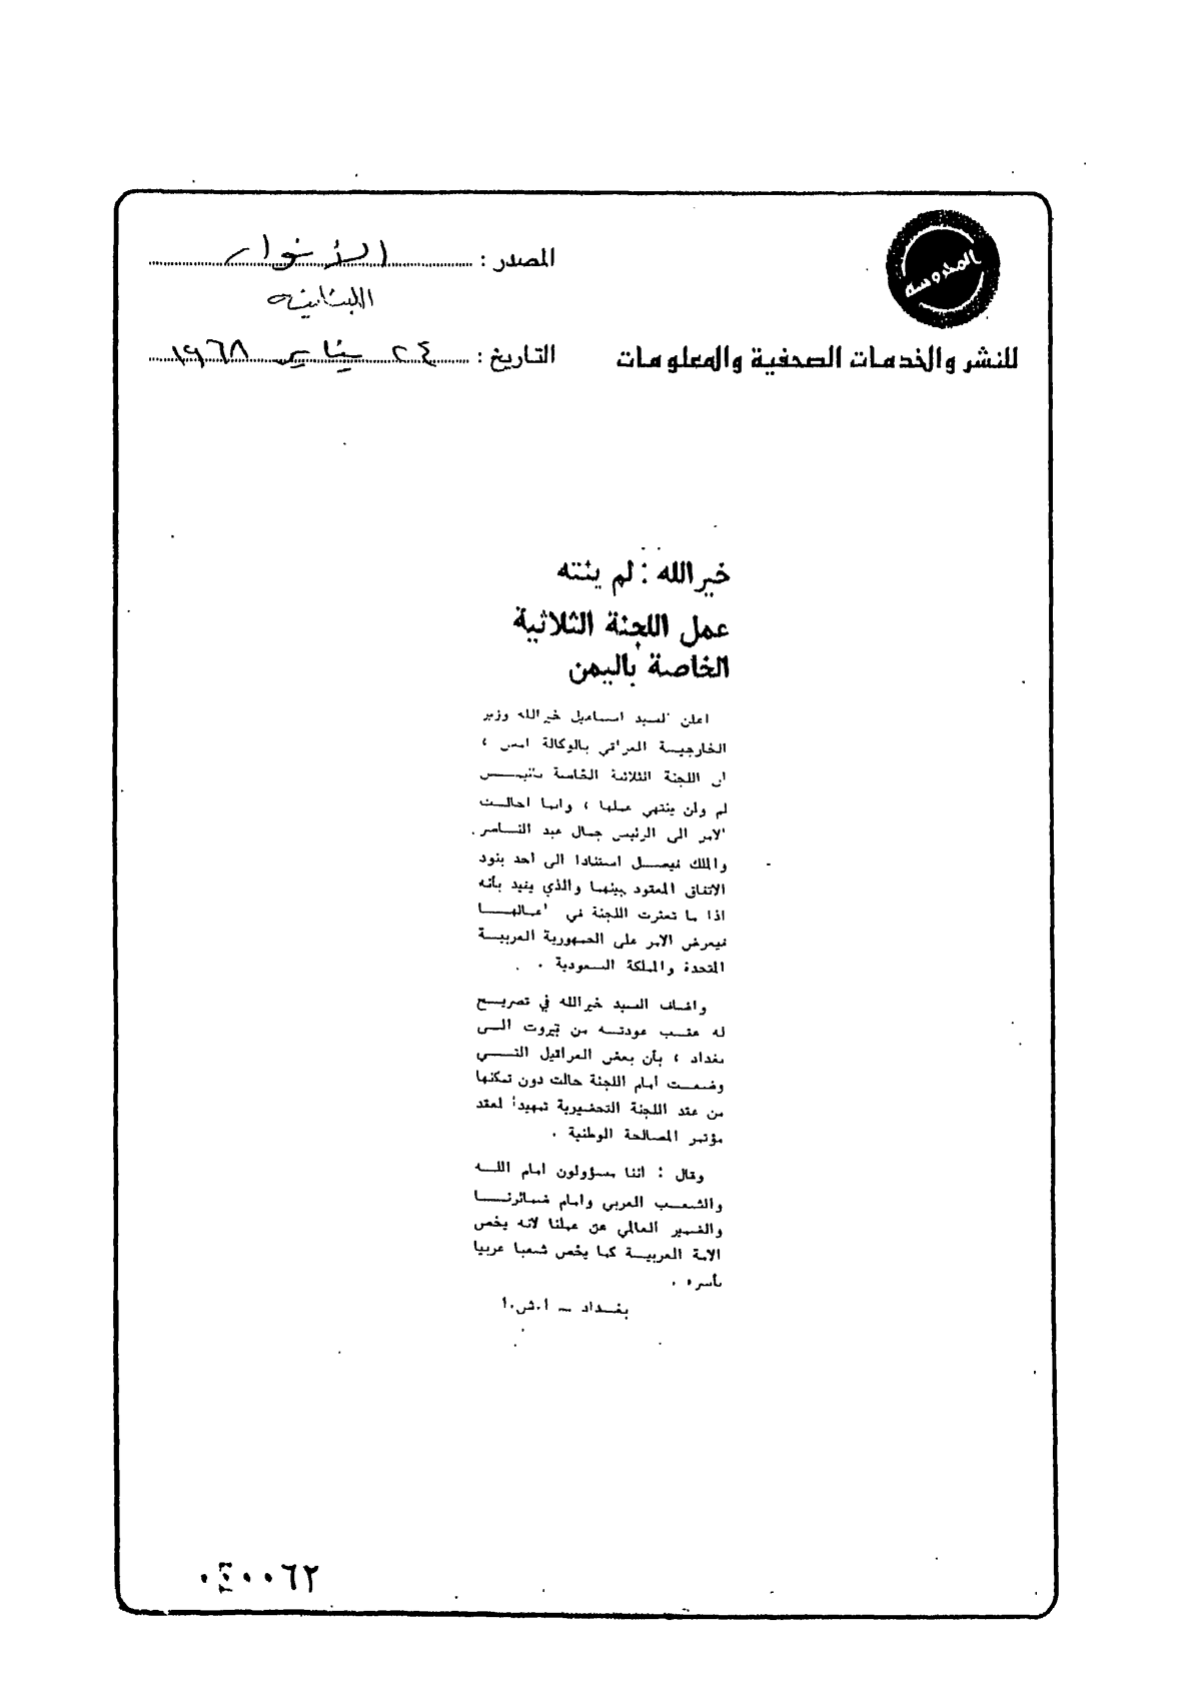 المحروسة
للنشر والخدمات الصحفية والمعلومات
المصدر : الأنوار
اللبنانية
التاريخ : ٢٤ يناير ١٩٦٨
خيرالله : لم ينته
عمل اللجنة الثلاثية
الخاصة باليمن
اعلن السيد اسماعيل خيرالله وزير
الخارجيسة العراقي بالوكالة امس ،
ان اللجنة الثلاثية الخاصة باليمــن
لم ولن ينتهي عملها ، وانما احالــت
الامر الى الرئيس جمال عبد النــاصر
والملك فيصــل استنادا الى احد بنود
الاتفاق المعقود بينهما والذي يفيد بأنه
اذا ما تعثرت اللجنة في اعمالهــا
فيعرض الامر على الجمهورية العربيــة
المتحدة والمملكة السعودية .
واضاف السيد خيرالله في تصريــح
له عقــب عودتــه من بيروت الــى
بغداد ، بأن بعض العراقيل التــي
وضعــت أمام اللجنة حالت دون تمكنها
من عقد اللجنة التحضيرية تمهيدا لعقد
مؤتمر المصالحة الوطنية .
وقال : اننا مسؤولون امام اللــه
والشعــب العربي وامام ضمائرنــا
والضمير العالمي عن عملنا لانه يخص
الامة العربيــة كما يخص شعبا عربيا
بأسره .
بغــداد ــ ا.ش.أ
٠٤٠٠٦٢